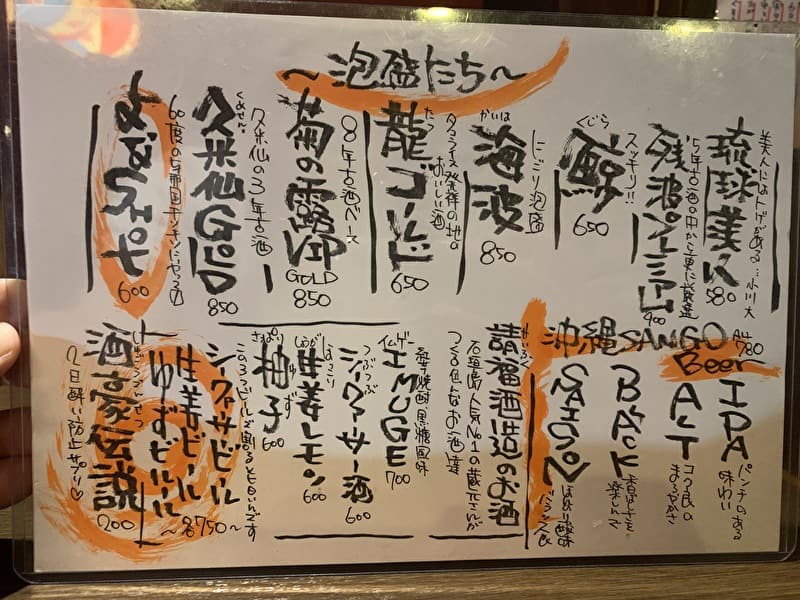 ～泡盛たち～
美人にはトゲがある…小川大
琉球美人
580
5年古酒の中から更に厳選
スッキリ!!
残波プレミアム
900
くじら
鯨
650
にごり泡盛
かいは
海波
850
タコライス発祥の地の
おいしい酒
たつ
龍ゴールド
650
8年古酒ベース
菊の露VIP
GOLD
850
久米仙の3年古酒
くめせん
久米仙GOLD
850
60度の与那国
よなぐに
600
沖縄SANGO
Beer
ALL
780
IPA
パンチのある
味わい
ALT
コク良の
まろやかさ
BLACK
香ばしさを
楽しんで
SAISON
ほんのり酸味
バランス良
せいふく
請福酒造のお酒
石垣島人気No10蔵元さんが
つくる色んなお酒達
イムゲー
IMUGE
700
芋焼酎黒糖風味
つぶつぶ
シークヮーサー酒
600
ほっこり
しょうが
生姜レモン
600
さっぱり
ゆず
柚子
600
シークヮーサービール
生姜ビール
ゆずビール
～各750～
このろつビールで割るとヤバいんです
酒豪伝説
200
2日酔い防止サプリ♡